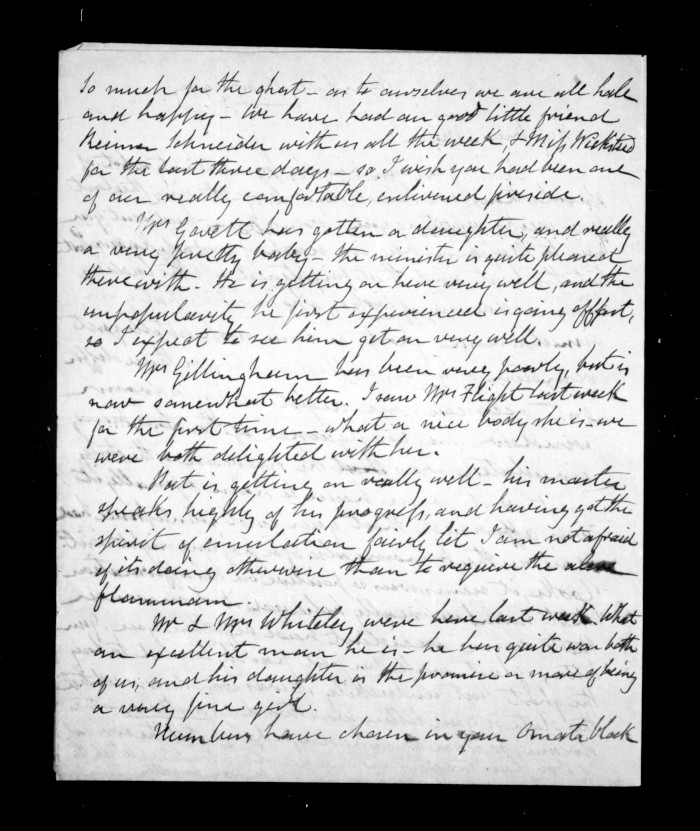 So much for the ghost – as to ourselves we are all hale
and happy – We have had our good little friend
Reimer Schneider with us all the week, & Miss Wicksteed
for the last three days – so I wish you had been one
of our really comfortable, enlivened fireside.
Mrs Govett has gotten a daughter, and really
a very pretty baby – the minister is quite pleased
therewith. He is getting on here very well, and the
unpopularity he first experienced is going off fast,
so I expect to see him get on very well.
Mrs Gillingham has been very poorly, but is
now somewhat better. I saw Mrs Flight last week
for the first time – what a nice body she is – we
were both delighted with her.
Pat is getting on really well – his master
speaks highly of his progress, and having got the
spirit of emulation fairly lit I am not afraid
of its doing otherwise than to require the
flammam.
Mr & Mrs Whiteley were here last week. What
an excellent man he is – he has quite won both
of us, and his daughter is the promise or more of being
a very fine girl.
Numbers have chosen in your Omata block